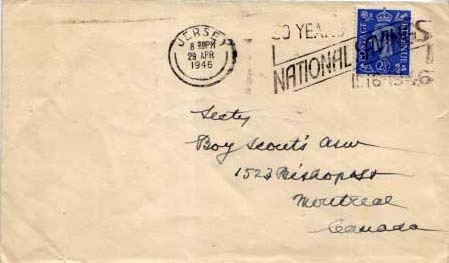 JERSEY
8 30PM
29 APR
1946
30 YEARS
NATIONAL SAVINGS
1916-1946
POSTAGE REVENUE
2½
Secty
Boy Scouts Assn
1523 Bishop St
Montreal
Canada